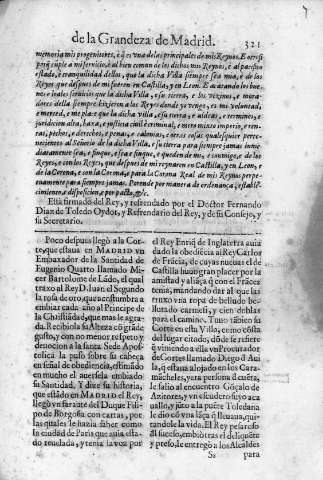 de la Grandeza de Madrid. 321
memoria mis progenitores, è q̃ es vna de las principales de mis Reynos. E otrosi
porq̃ cumple a mi seruicio, è al bien comun de los dichos mis Reynos, è al pacifico
estado, è tranquilidad dellos, que la dicha Villa siempre sea mia, è de los
Reyes que despues de mi fueren en Castilla, y en Leon. E acatando los buenos
è leales seruicios que la dicha Villa, è su tierra, e los vezinos, e moradores
della siempre hizieron a los Reyes donde yo vengo, e mi voluntad,
e merced, e me place que la dicha villa, e su tierra, e aldeas, e terminos, e
juridicion alta, baxa, e justicia ciuil e criminal, e mero mixto imperio, e rentas,
pechos, e derechos, e penas, e calonias, e otras cosas qualesquier pertenecientes
al Señorio de la dicha Villa, e su tierra para siempre jamas, inmediatamente
sea, e finque, e sea e finque, e queden de mi, e conmigo, e de los
Reyes, e con los Reyes, que despues de mi reynaren en Castilla, y en Leon, e
de la Corona, e con la Corona, e para la Corona Real de mis Reynos perpetuamente
para siempre jamas. Porende por manera de ordenança, establecimiento
e disposicion, e por pacto, &c.
Està firmado del Rey, y refrendado por el Doctor Fernando
Diaz de Toledo Oydor, y Refrendario del Rey, y de su Consejo, y
su Secretario.
Poco despues llegò a la Corte,
que estaua en MADRID vn
Embaxador de la Santidad de
Eugenio Quarto llamado Micer
Bartolome de Lãdo, el qual
truxo al Rey D. Iuan el Segundo
la rosa de oro, que acostumbra a
embiar cada año al Principe de
la Christiãdad, que mas le agrada.
Recibiola su Alteza cõ grãde
gusto, y con no menor respeto y
deuocion a la santa Sede Apostolica
la puso sobre su cabeça
en señal de obediencia, estimãdo
en mucho el auersela embiado
su Santidad. Y dize su historia,
que estãdo en MADRID el Rey,
llegò vn faraute del Duque Filipo
de Borgoña con cartas, por
las quales le hazia saber como
la ciudad de Paris que auia estado
reuelada, y tenia la voz por
el Rey Enriq̃ de Inglaterra auia
dado la obediẽcia al Rey Carlos
de Frãcia, de cuyas nueuas el de
Castilla huuo gran placer por la
amistad y aliãça q̃ con el Frãces
tenia, mandando dar al que las
truxo vna ropa de belludo bellutado
de carmesi, y cien doblas
para el camino. Tuuo tãbien su
Corte en esta Villa, como cõsta
del lugar citado, dõde se refiere
q̃ viniendo a ella vn Procurador
de Cortes llamado Diego d Auila,
q̃ estaua alojado en los Caramãcheles,
y era persona d cuẽta,
le salio al encuentro Gõçalo de
Azitores, y vn escudero suyo a cauallo,
y jũto a la puẽte Toledana
le dio cõ vna lãça q̃ lleuaua, quitandole
la vida. El Rey pesaroso
dl sucesso, embiò tras el deliquẽte
y preso, le entregò a los Alcaldes
Ss para